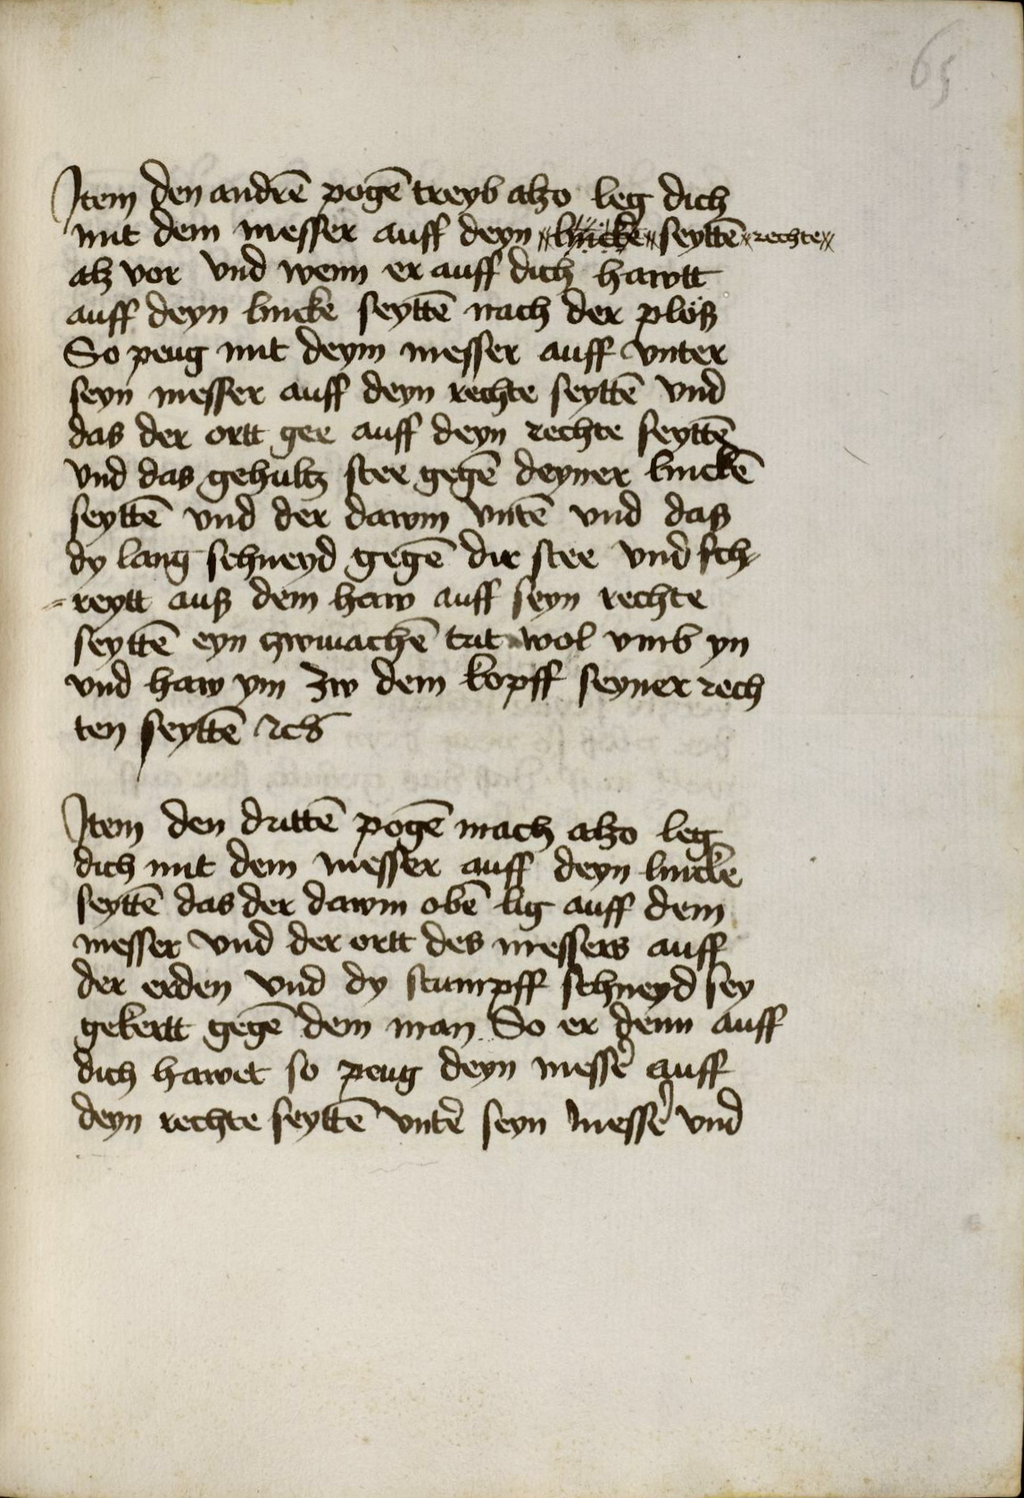 65
Item den andrē pogē treyb alzo leg dich
mit dem messer auff deyn lincke seyttē rechte
alz vor vnd wenn er auff dich hawtt
auff deyn lincke seyttē nach der plöß
So peug mit deym messer auff vnter
seyn messer auff deyn rechte seyttē vnd
das der ortt gee auff deyn rechte seyttē
vnd das gehultz stee gegē deyner linckē
seyttē vnd der dawm vntē vnd daß
dy lang schneyd gegē dir stee vnd sch-
=reytt auß dem haw auff seyn rechte
seyttē eyn zwiuachē trit wol vmb yn
vnd haw ym zw dem kopff seyner rech
ten seyttē etc
Item den drittē pogē mach alzo leg
dich mit dem messer auff deyn lincke
seyttē das der dawm obē lig auff dem
messer vnd der ortt des messers auff
der erden vnd dy stumpff schneyd sey
gekertt gegē dem man So er denn auff
dich hawet so peug deyn messē auff
deyn rechte seyttē vntē seyn messē vnd